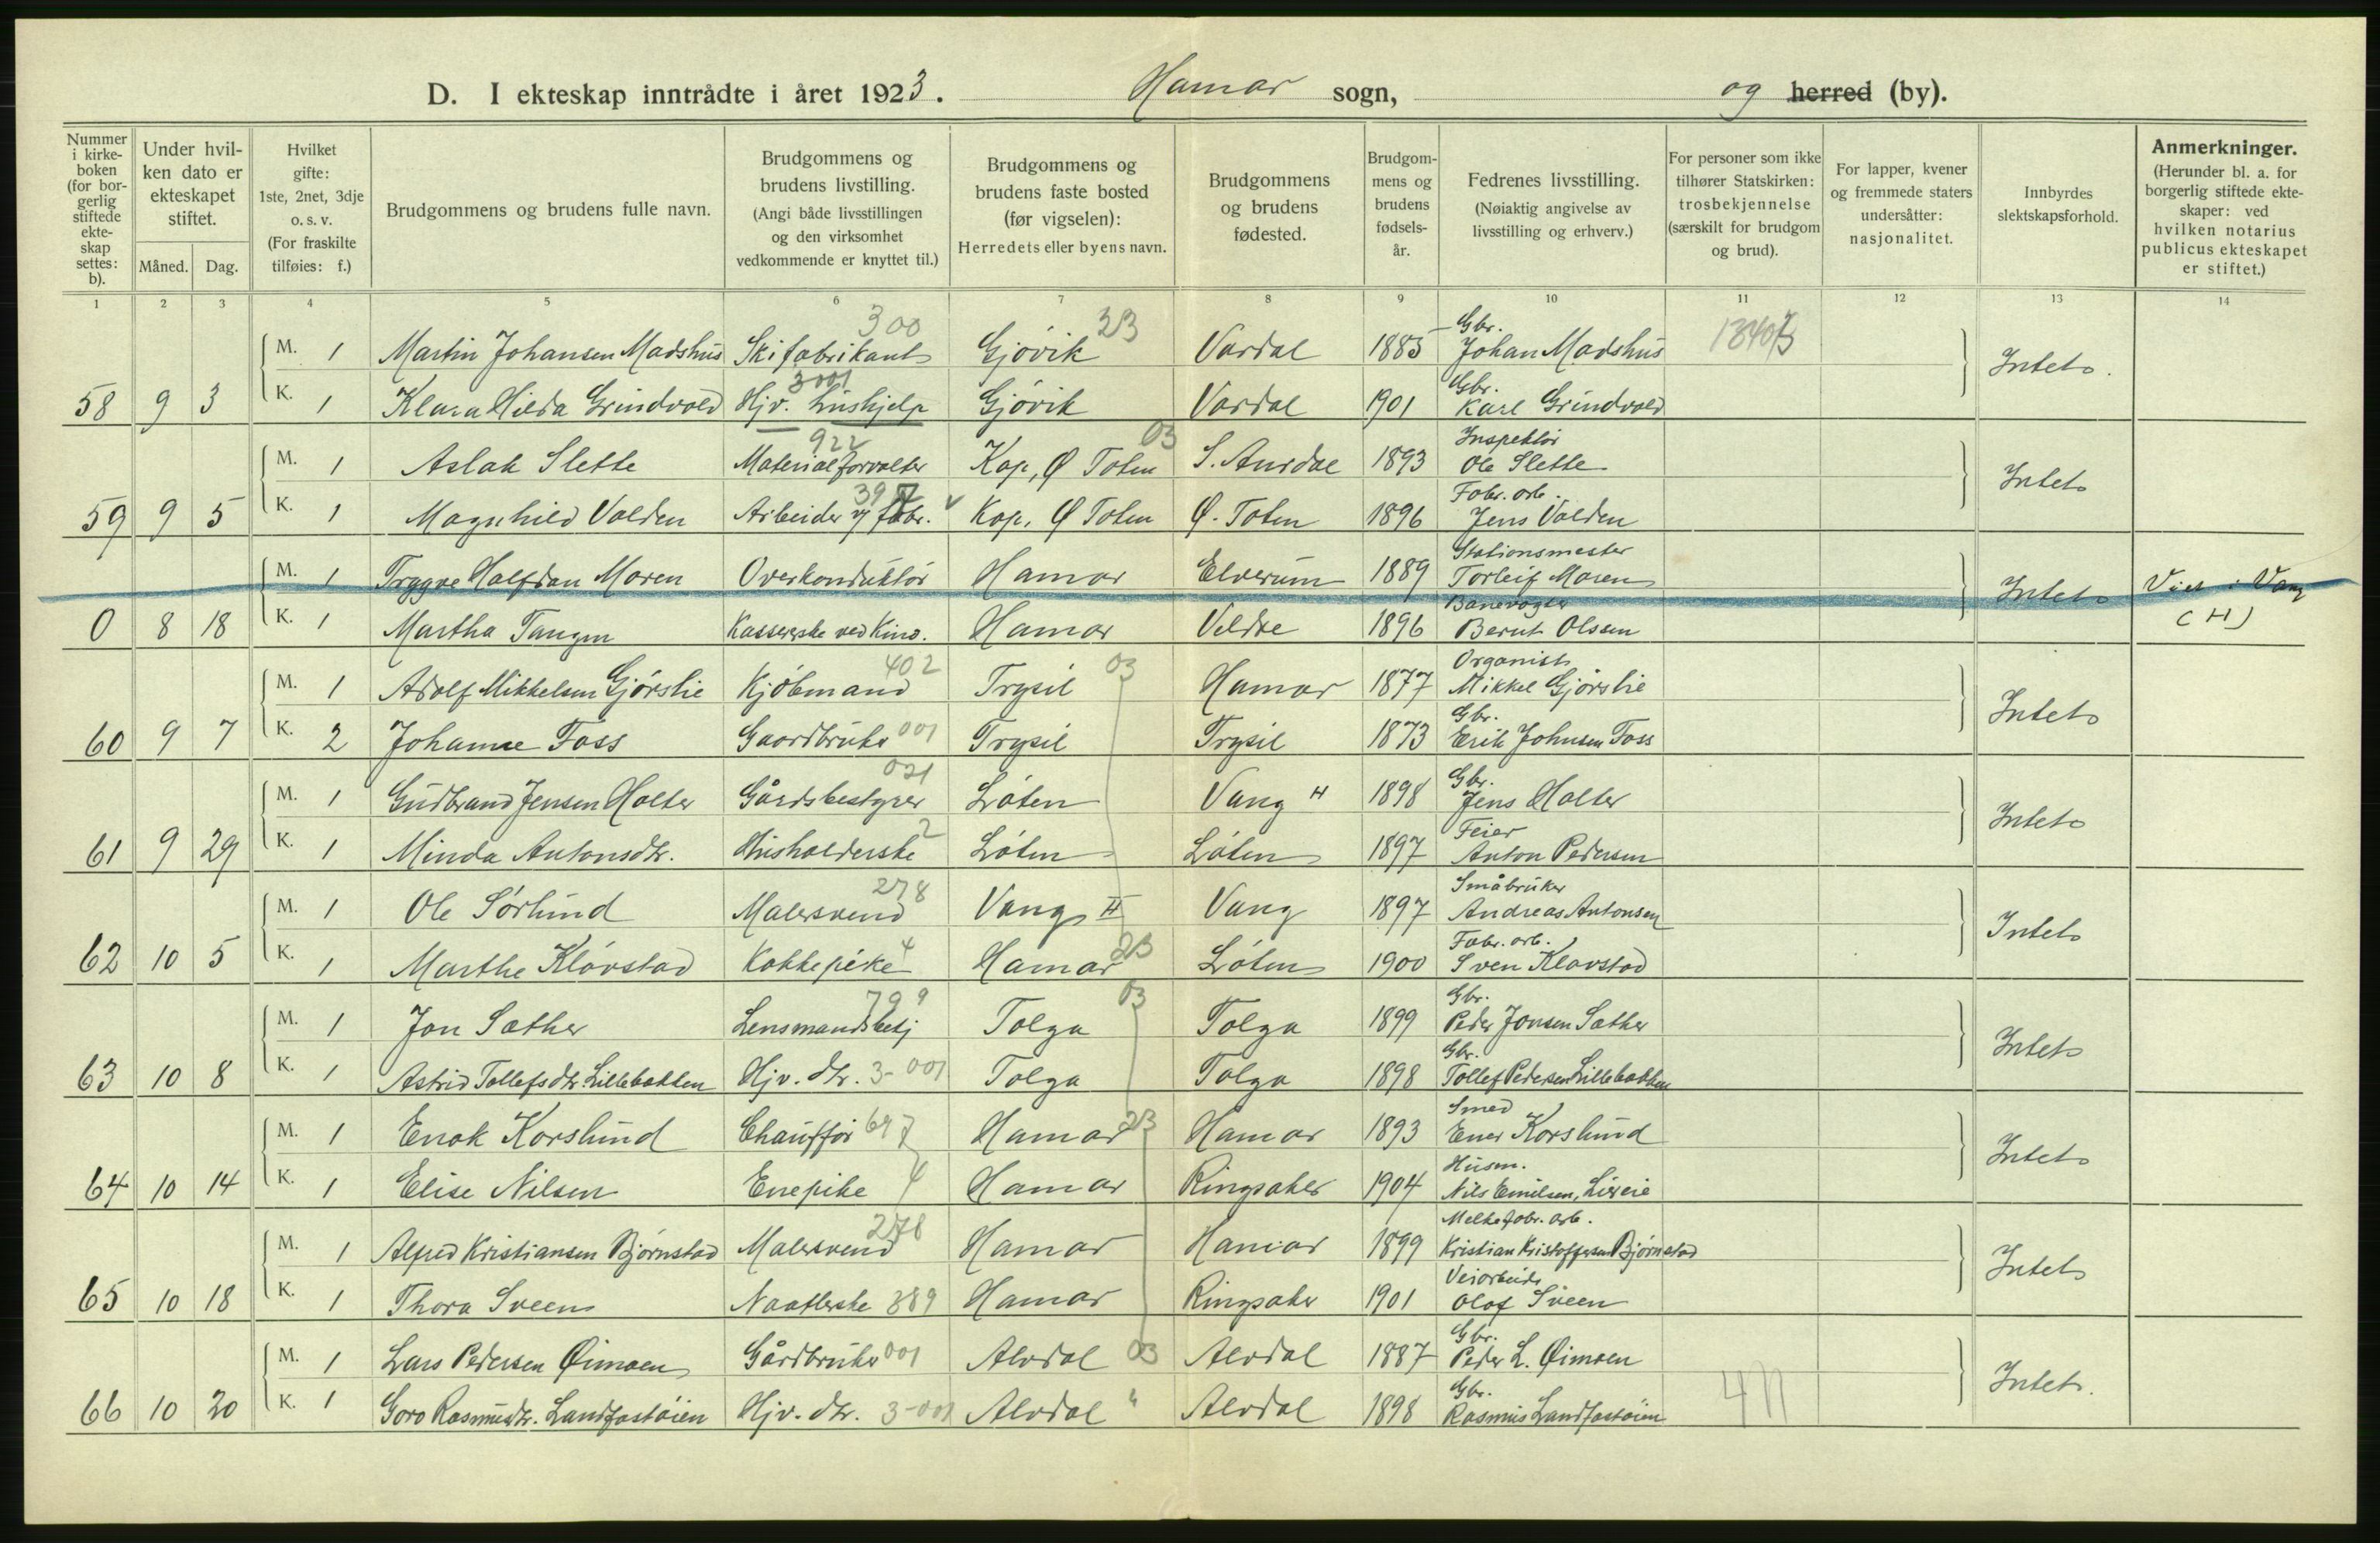 D. I ekteskap inntrådte i året 1923. Hamar sogn, og herred (by).
Nummer i kirkeboken (for borgerlig stiftede ekteskap settes: b).
Under hvilken dato er ekteskapet stiftet.
Måned. Dag.
Hvilket gifte: 1ste, 2net, 3dje o. s. v. (For fraskilte tilføies: f.)
Brudgommens og brudens fulle navn.
Brudgommens og brudens livstilling. (Angi både livsstillingen og den virksomhet vedkommende er knyttet til.)
Brudgommens og brudens faste bosted (før vigselen): Herredets eller byens navn.
Brudgommens og brudens fødested.
Brudgommens og brudens fødselsår.
Fedrenes livsstilling. (Nøiaktig angivelse av livsstilling og erhverv.)
For personer som ikke tilhører Statskirken: trosbekjennelse (særskilt for brudgom og brud).
For lapper, kvener og fremmede staters undersåtter: nasjonalitet.
Innbyrdes slektskapsforhold.
Anmerkninger. (Herunder bl. a. for borgerlig stiftede ekteskaper: ved hvilken notarius publicus ekteskapet er stiftet.)
1 2 3 4 5 6 7 8 9 10 11 12 13 14
300 23 Gbr.
M. 1 Martin Johansen Madshus Skifabrikant Gjövik Vardal 1885 Johan Madshus Intet.
3001 Gbr.
58 9 3 K. 1 Klara Hilda Grindvold Hjv. hushjelp Gjövik Vardal 1901 Karl Grindvold
922 03 Inspektör
M. 1 Aslak Slette Materialforvalter Kap, Ø Toten S. Aurdal 1893 Ole Slette Intet
Fabr. arb.
59 9 5 K. 1 Magnhild Valden Arbeider v/ fabr. Kap, Ø Toten Ø. Toten 1896 Jens Valden
Stationsmester
M. 1 Tryggve Halfdan Moren Overkonduktör Hamar Elverum 1889 Torleif Moren Intet Viet i Vang
Banevogter
0 8 18 K. 1 Martha Tangen Kassererske ved Kino. Hamar Veldre 1896 Bernt Olsen (H)
402 03 Organist
M. 1 Adolf Mikkelsen Gjörslie Kjöbmand Trysil Hamar 1877 Mikkel Gjörslie Intet
Gbr.
60 9 7 K. 2 Johanne Foss Gaardbruker 001 Trysil Trysil 1873 Erik Johnsen Foss
021 Gbr.
M. 1 Gudbrand Jensen Holter Gårdsbestyrer Löten Vang H 1898 Jens Holter Intet
2 Feier
61 9 29 K. 1 Minda Antonsdtr. Husholderske Löten Löten 1897 Anton Pedersen
278 Småbruker
M. 1 Ole Sörlund Malersvend Vang H Vang 1897 Andreas Antonsen Intet
4 23 Fabr. arb.
62 10 5 K. 1 Marthe Klövstad Kokkepike Hamar Löten 1900 Sven Klövstad
799 03 Gbr.
M. 1 Jon Sæther Lensmandsbetj Tolga Tolga 1899 Peder Jonsen Sæther Intet
Gbr.
63 10 8 K. 1 Astrid Tollefsdtr. Lillebakken Hjv. dtr. 3-001 Tolga Tolga 1898 Tollef Pedersen Lillebakken
23 Smed
M. 1 Enok Korslund Chaufför 647 Hamar Hamar 1893 Korslund Intet
Husm.
64 10 14 K. 1 Elise Nilsen Enepike 4 Hamar Ringsaker 1904 Nils Emilsen,
278 Melkefabr. arb.
M. 1 Alfred Kristiansen Bjørnstad Malersvend Hamar Hamar 1899 Kristian Kristoffersen Bjørnstad Intet
Veiarbeider
65 10 18 K. 1 Thora Sveen Naatlerske 389 Hamar Ringsaker 1901 Olaf Sveen
Gbr.
M. 1 Lars Pedersen Øimoen Gårdbruker 001 Alvdal 03 Alvdal 1887 Peder L. Øimoen Intet.
Gbr.
66 10 20 K. 1 Goro Rasmusdtr. Landfastöien Hjv. dtr. 3-001 Alvdal " Alvdal 1898 Rasmus Landfastöien